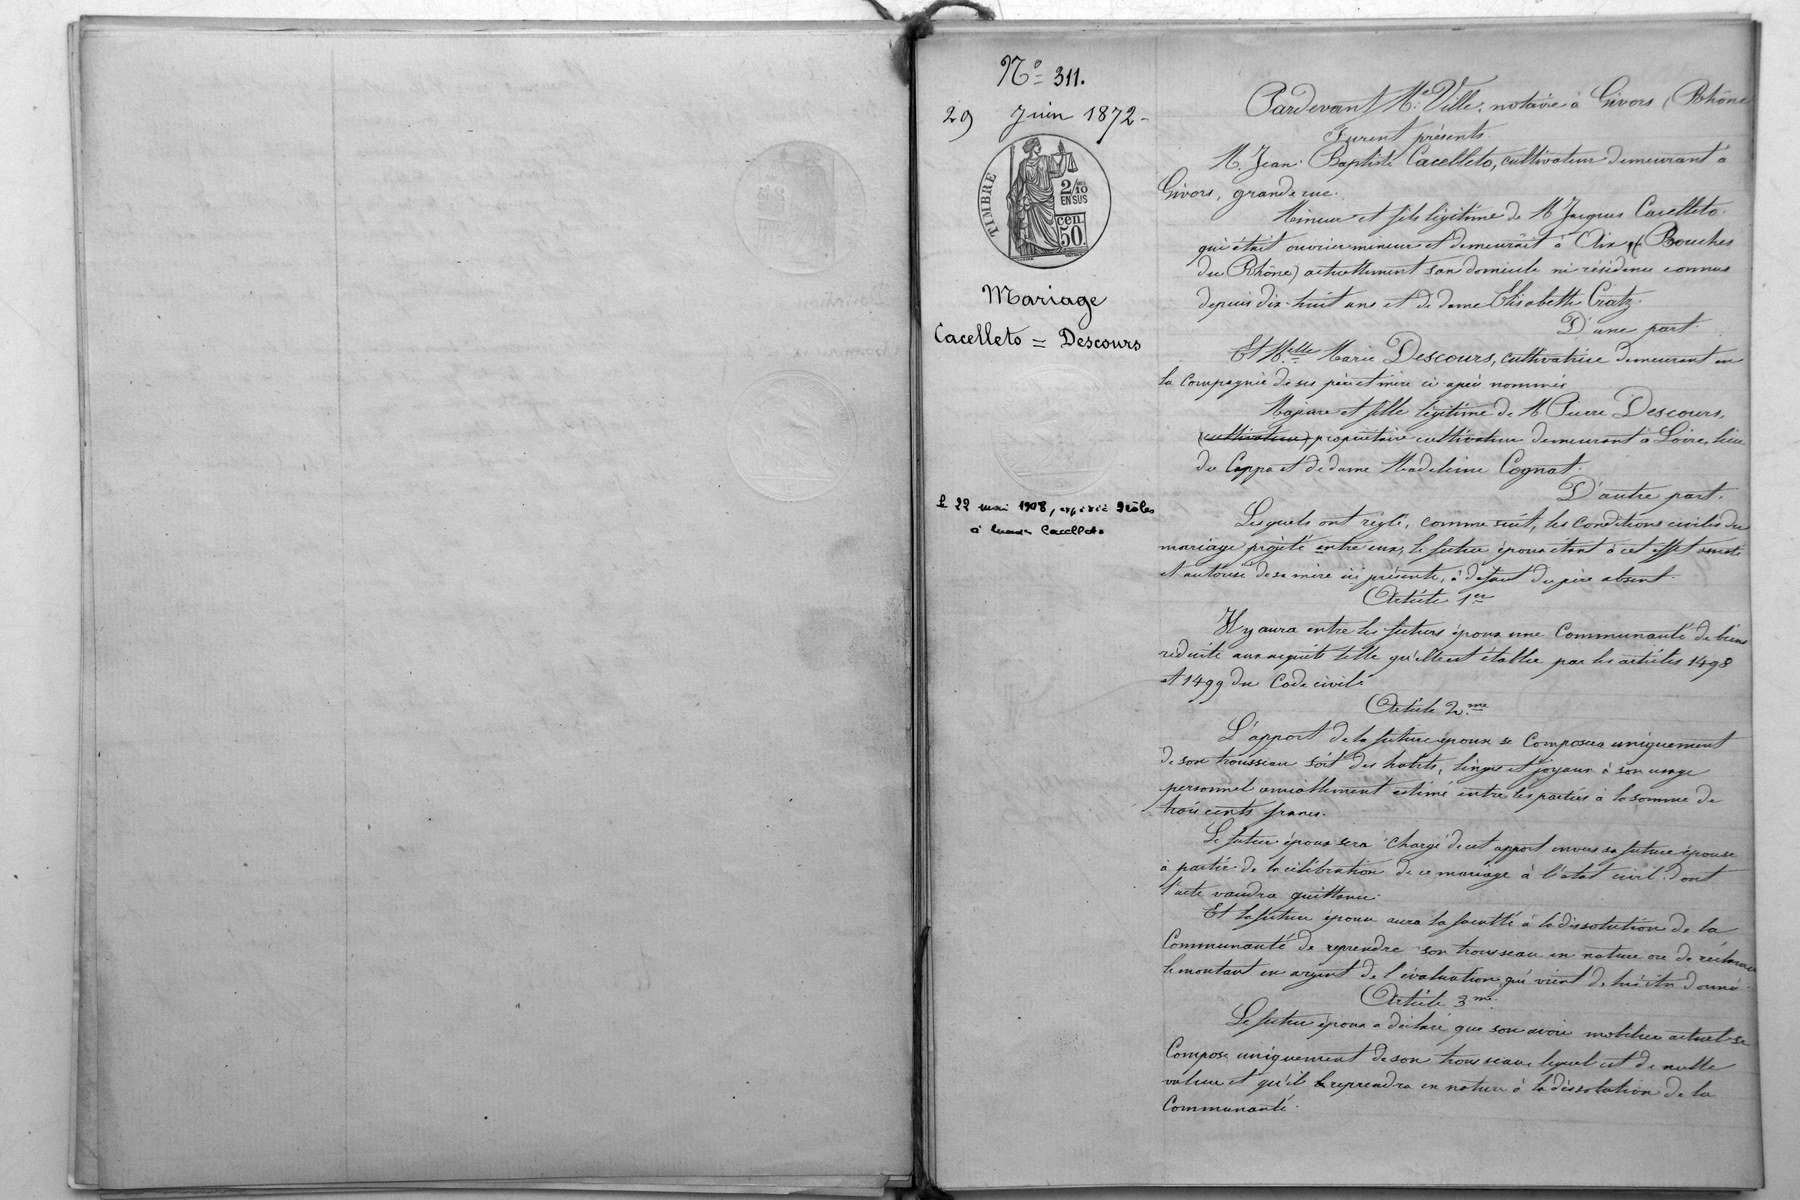 N° 311.
29 Juin 1872 -
TIMBRE
2/10
EN SUS
cen.
50.
Mariage
Cacelleto = Descours
Le 22 mai 1908, 
à Cacelleto
Pardevant Me Ville, notaire à Givors (Rhône
Furent présents.
M. Jean-Baptiste Cacelleto, cultivateur demeurant à
Givors, grande rue.
Mineur et fils légitime de M Jacques Cacelleto
qui était ouvrier mineur et demeurait à Aix, (Bouches
du Rhône) actuellement san domicile ni résidence connus
depuis dix-huit ans et de dame Elisabeth Cratz.
D'une part.
Et Melle Marie Descours, cultivatrice demeurant en
la compagnie de ses père et mère ci-après nommés
Majeure et fille légitime de M Pierre Descours,
(cultivateur) propriétaire cultivateur demeurant à Loire, lieu
du Cappa et de dame Madeleine Cognat.
D'autre part.
Lesquels ont réglé, comme suit, les conditions civiles du
mariage projeté entre eux, le futur époux étant à cet effet assisté
et autorisé de sa mère ici présente, à défaut du père absent.
Article 1er
Il y aura entre les futurs époux une Communauté de biens
réduite aux acquêts telle qu'elle est établie par les articles 1498
et 1499 du Code civil.
Article 2me
L'apport de la future épouse se composera uniquement
de son trousseau soit des habits, linges et joyaux à son usage
personnel amiablement estimé entre les parties à la somme de
trois cents francs.
Le futur époux sera chargé de cet apport envers sa future épouse
à partir de la célébration de ce mariage à l'état civil dont
l'acte vaudra quittance.
Et la future épouse aura la faculté à la dissolution de la
Communauté de reprendre son trousseau en nature ou de réclamer
le montant en argent de l'évaluation qui vient de lui être donné.
Article 3me
Le futur époux a déclaré que son avoir mobilier actuel se
Compose uniquement de son trousseau lequel est de nulle
valeur et qu'il le reprendra en nature à la dissolution de la
Communauté.